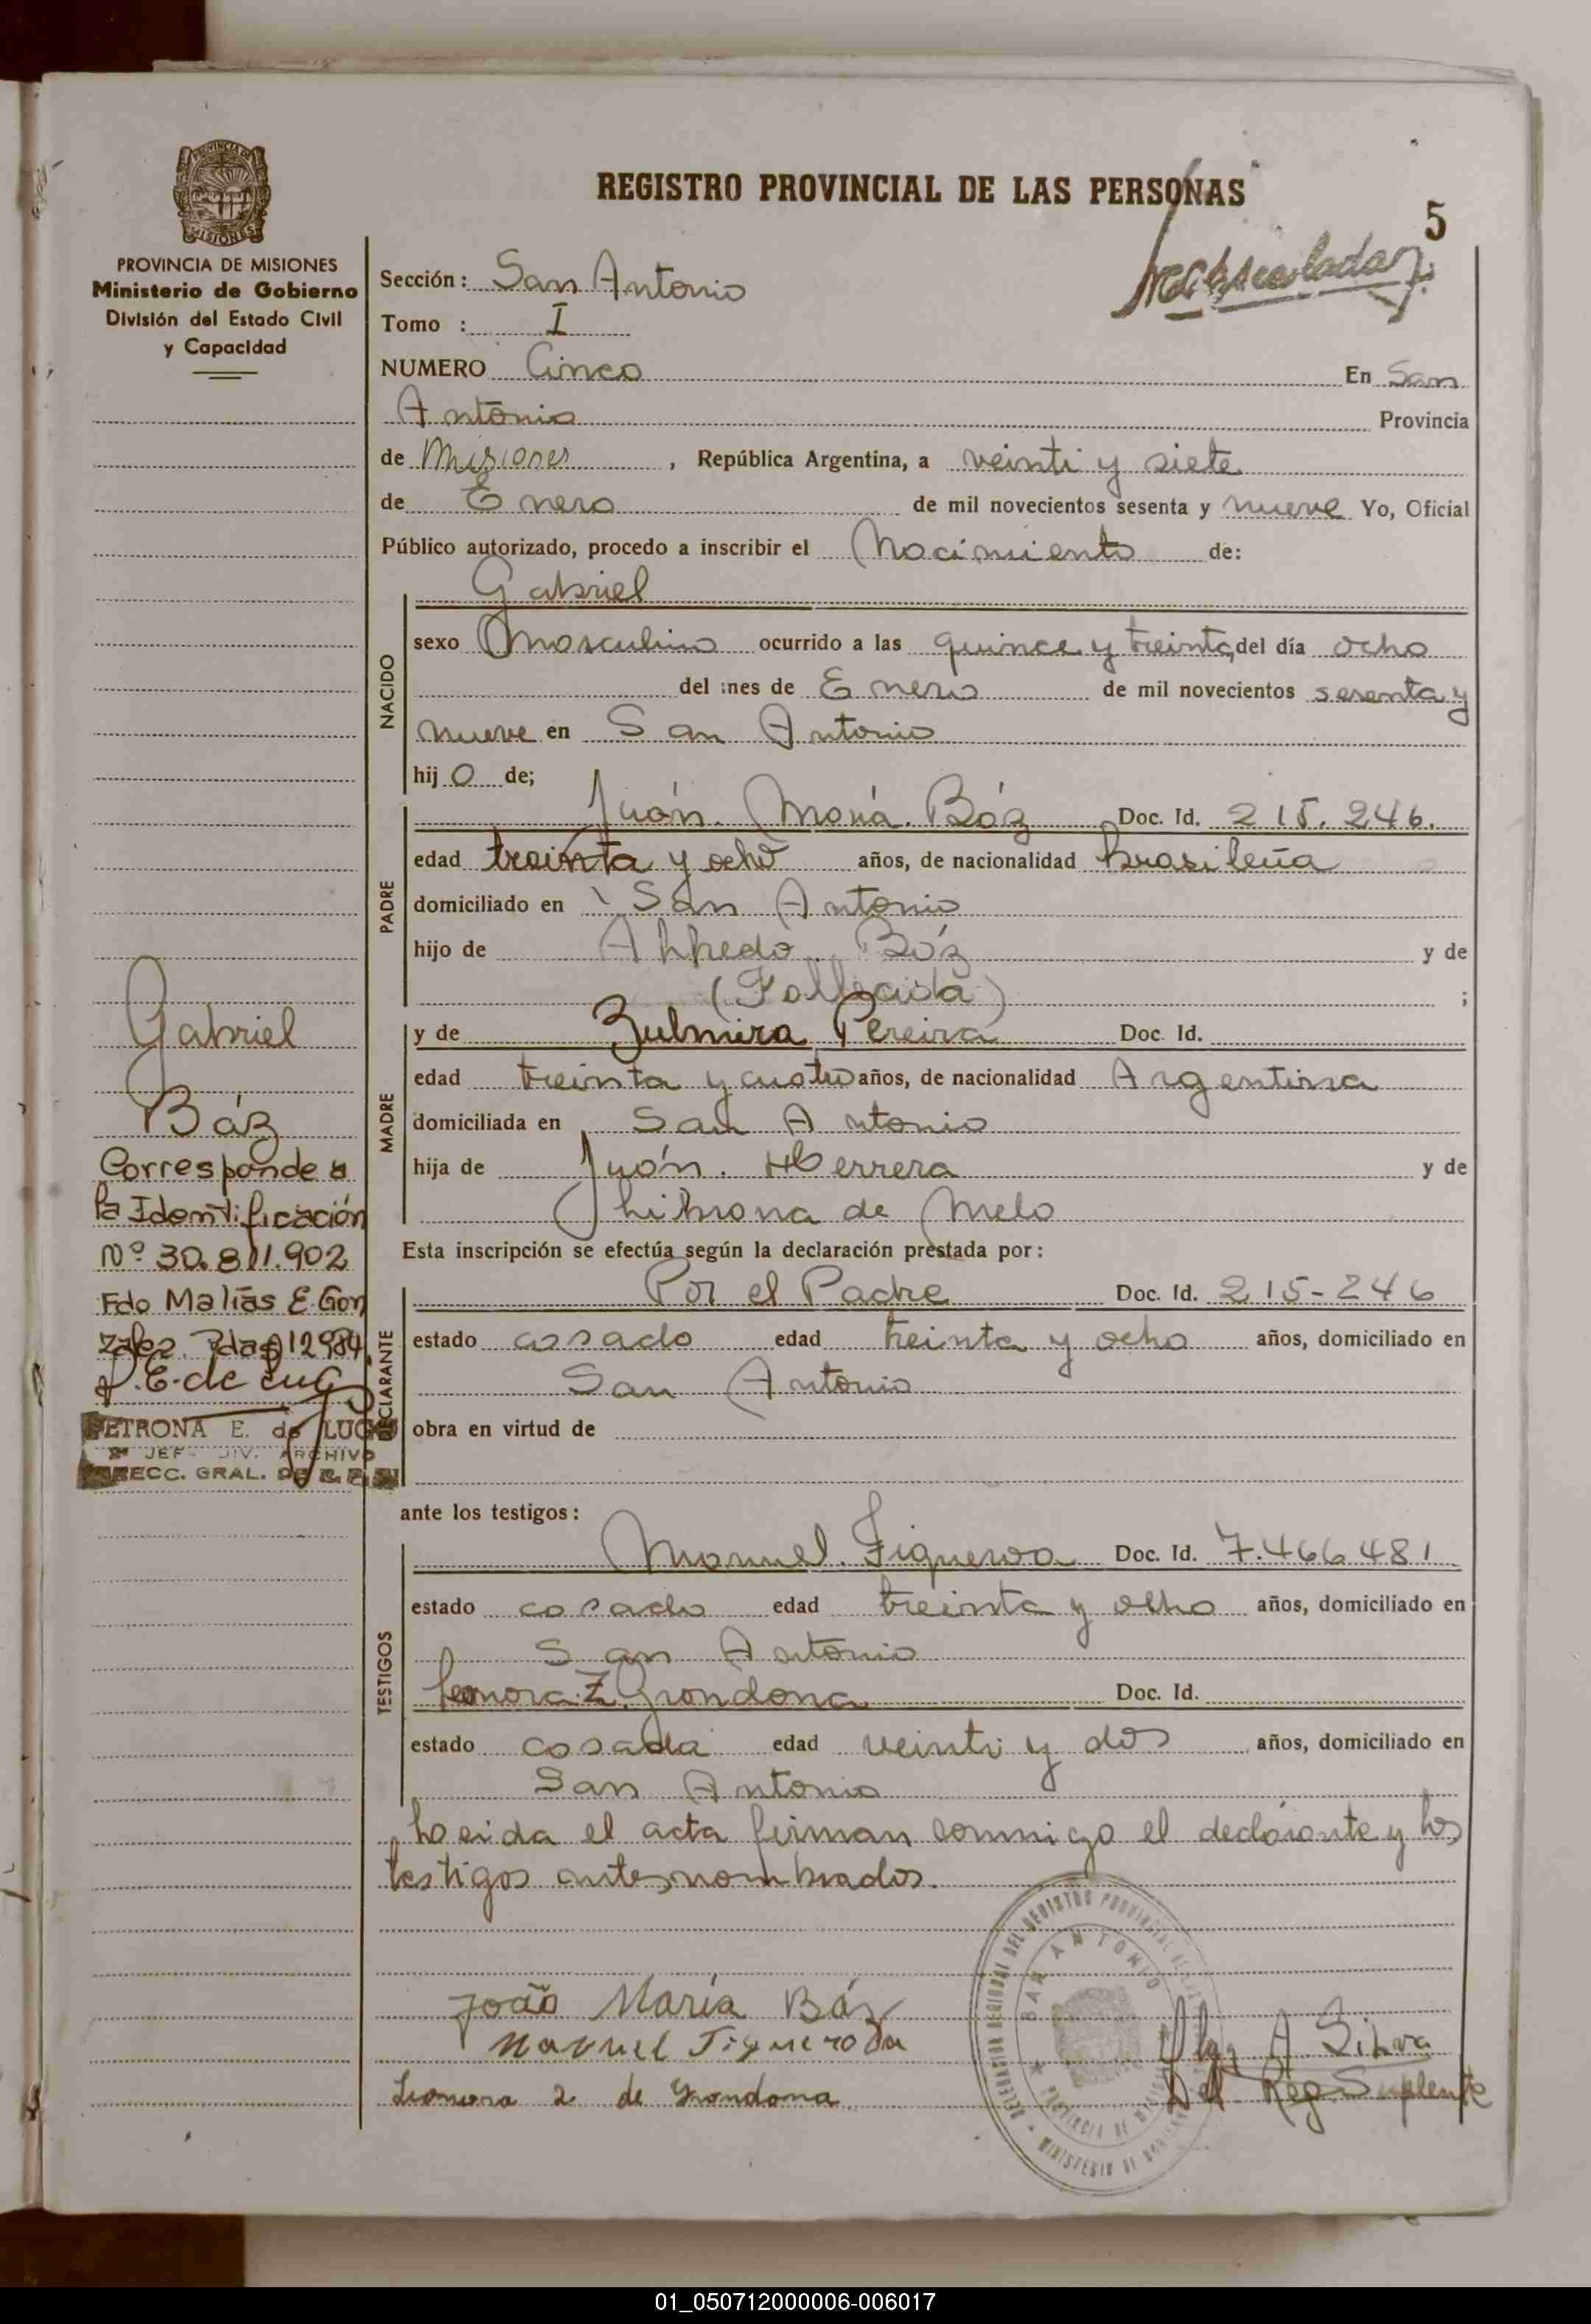 REGISTRO PROVINCIAL DE LAS PERSONAS
5
PROVINCIA DE MISIONES
Ministerio de Gobierno
División del Estado Civil
y Capacidad
Sección: San Antonio
Tomo : I
NUMERO Cinco En San
Antonio Provincia
de Misiones, República Argentina, a veinti y siete
de Enero de mil novecientos sesenta y nueve Yo, Oficial
Público autorizado, procedo a inscribir el Nacimiento de:
Gabriel
NACIDO
sexo Masculino ocurrido a las quince y treinta, del día ocho
del mes de Enero de mil novecientos sesenta y
nueve en San Antonio
hijo de;
PADRE
Juán. María. Báz Doc. Id. 215.246.
edad treinta y ocho años, de nacionalidad brasileña
domiciliado en San Antonio
hijo de Alfredo Báz y de
(Fallecida) ;
MADRE
y de Zulmira Pereira Doc. Id.
edad treinta y cuatro años, de nacionalidad Argentina
domiciliada en San Antonio
hija de Juán. Herrera y de
de Melo
Esta inscripción se efectúa según la declaración prestada por:
DECLARANTE
Por el Padre Doc. Id. 215-246
estado casado edad treinta y ocho años, domiciliado en
San Antonio
obra en virtud de
ante los testigos:
TESTIGOS
Manuel. Figueroa Doc. Id. 7.466.481
estado casado edad treinta y ocho años, domiciliado en
San Antonio
Leonora Z. Grondona Doc. Id.
estado casada edad veinti y dos años, domiciliado en
San Antonio
Leida el acta firman conmigo el declarante y los
testigos antes nombrados.
João María Báz
Manuel Figueroa
Leonora Z de Grondona
Olga A Silva
Del Reg. Suplente
Gabriel
Báz
Corresponde a
la Identificación
Nº 30.811.902
Fdo Matías E. Gon
zalez. Pdas 12984
PETRONA E. de LUGO
JEF. DIV. ARCHIVO
DIRECC. GRAL. DE
DELEGACION REGIONAL DEL REGISTRO PROVINCIAL DE LAS
SAN ANTONIO
PROVINCIA DE MISIONES
MINISTERIO DE GOBIERNO
01_050712000006-006017